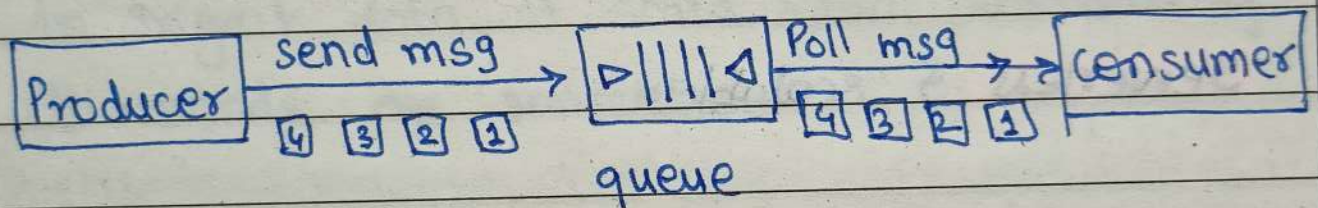 Producer
send msg
4 3 2 1
queue
Poll msg
4 3 2 1
consumer